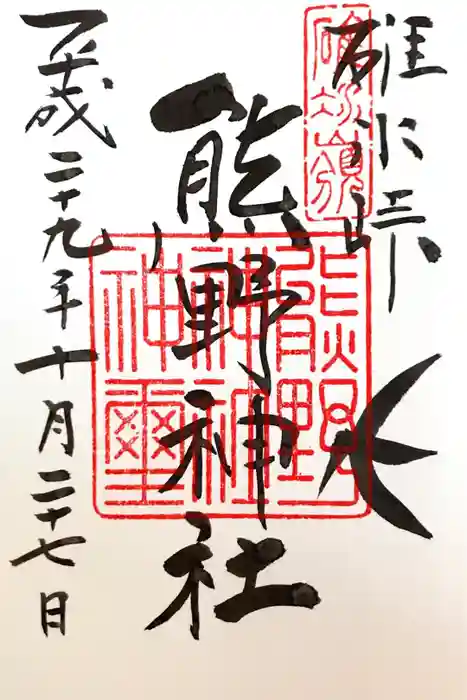 碓氷峠
碓氷嶺
熊野神社
熊野神社神璽
平成二十九年十月二十七日